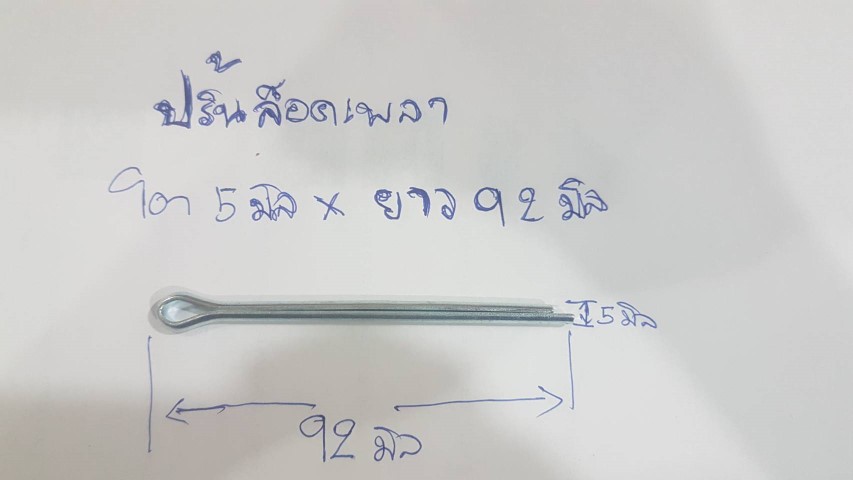 ปริ้นล๊อคเพลา
โต 5 มิล x ยาว 92 มิล
5 มิล
92 มิล